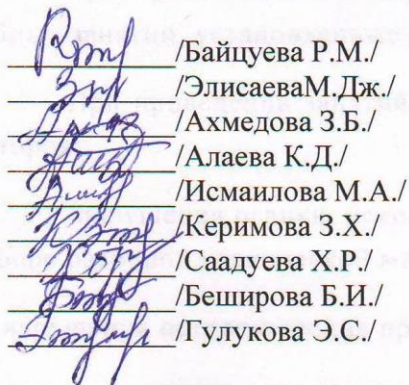 /Байцуева Р.М./
/ЭлисаеваМ.Дж./
/Ахмедова З.Б./
/Алаева К.Д./
/Исмаилова М.А./
/Керимова З.Х./
/Саадуева Х.Р./
/Беширова Б.И./
/Гулукова Э.С./